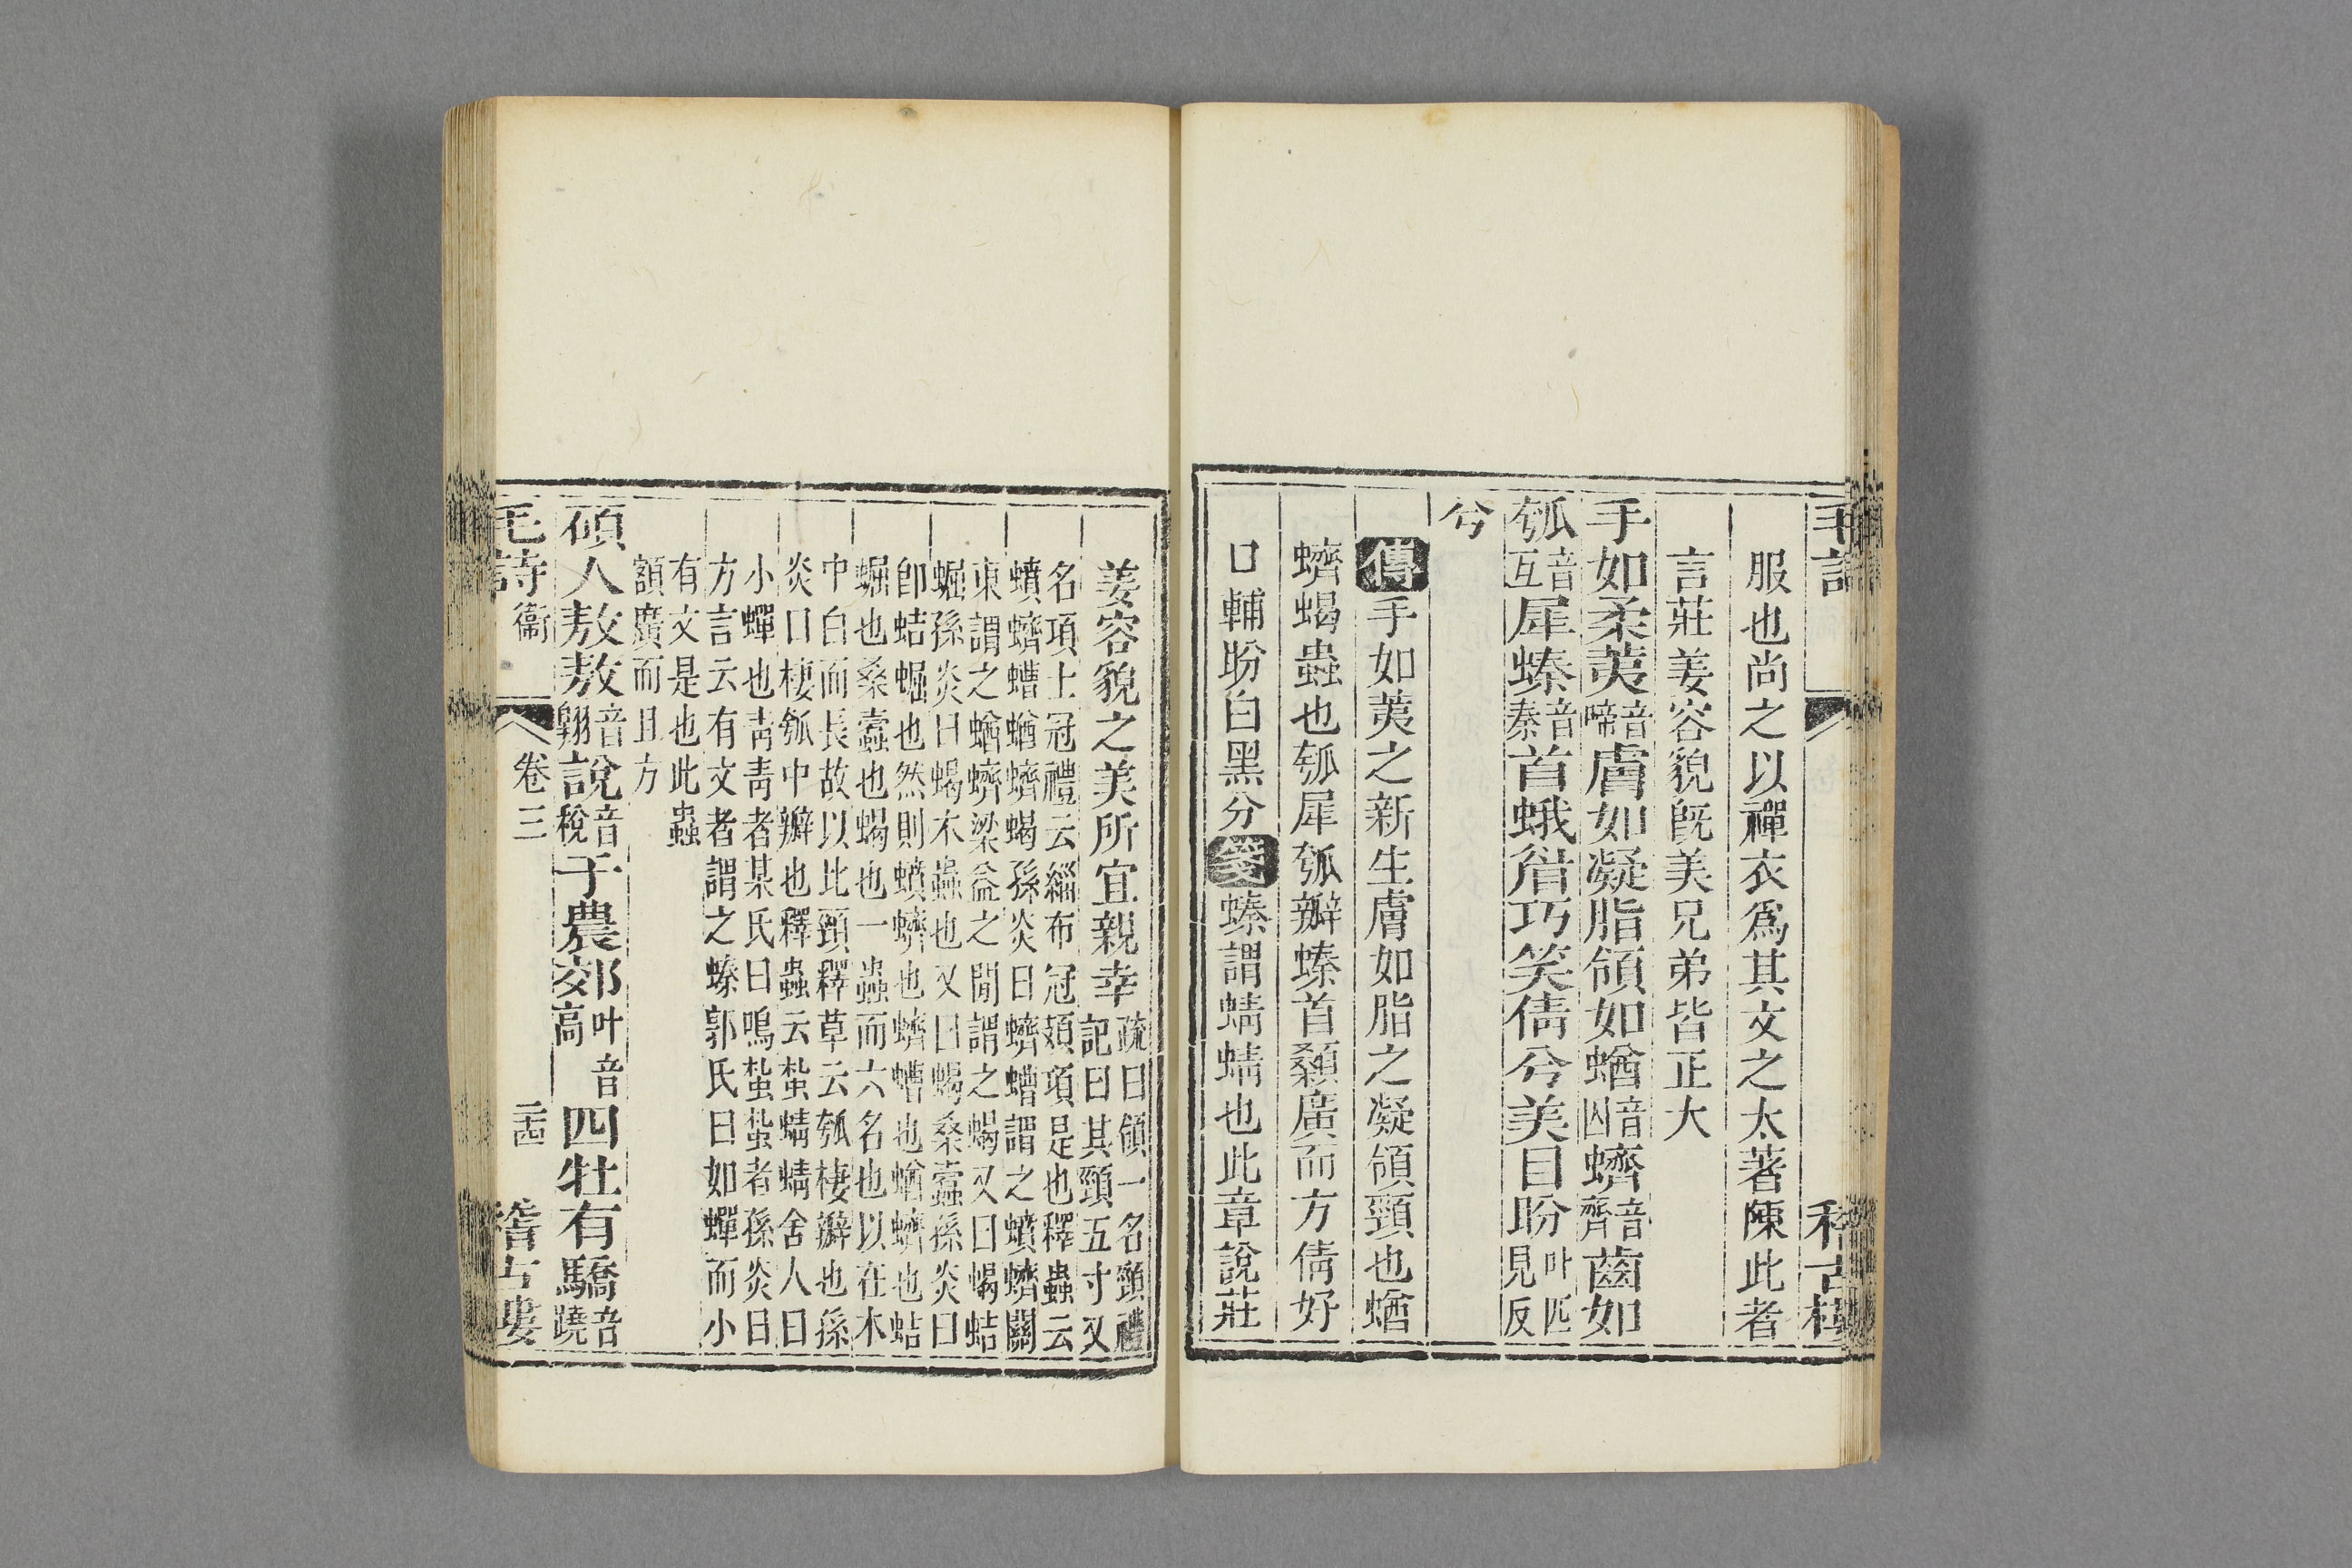 毛詩
稽古樓
服也尚之以禪衣爲其文之太著陳此者
言莊姜容貌旣美兄弟皆正大
手如柔荑音啼膚如凝脂領如蝤音囚蠐音齊齒如
瓠音互犀螓音秦首蛾眉巧笑倩兮美目盼叶匹見反
兮
傳手如荑之新生膚如脂之凝領頸也蝤
蠐蝎蟲也瓠犀瓠瓣螓首顙廣而方倩好
口輔盼白黑分箋螓謂蜻蜻也此章說莊
姜容貌之美所宜親幸疏曰領一名頸禮
記曰其頸五寸又
名項士冠禮云緇布冠頍項是也釋蟲云
蟦蠐螬蝤蠐蝎孫炎曰蠐螬謂之蟦蠐關
東謂之蝤蠐梁益之閒謂之蝎又曰蝎蛣
蝠孫炎曰蝎木蟲也又曰蝎桑蠹孫炎曰
卽蛣蝠也然則蟦蠐也蠐螬也蝤蠐也蛣
蝠也桑蠹也蝎也一蟲而六名也以在木
中白而長故以比頸釋草云瓠棲瓣也孫
炎曰棲瓠中瓣也釋蟲云蚻蜻蜻舍人曰
小蟬也靑靑者某氏曰鳴蚻蚻者孫炎曰
方言云有文者謂之螓郭氏曰如蟬而小
有文是也此蟲
額廣而且方
碩人敖敖音翺說音稅于農郊叶音高四牡有驕音蹺
毛詩衞
卷三
二四
稽古樓